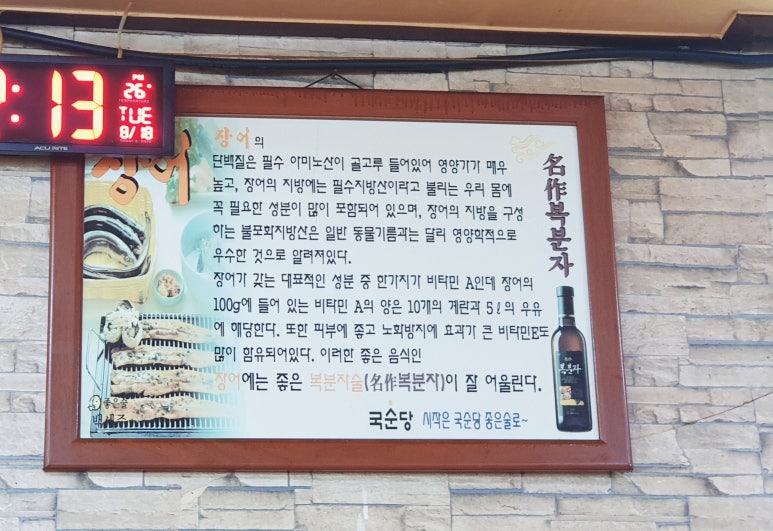 :13
PM
26°
TEMPERATURE
TUE
8/18
ACU RITE
장어
장어의
단백질은 필수 아미노산이 골고루 들어있어 영양가가 매우
높고, 장어의 지방에는 필수지방산이라고 불리는 우리 몸에
꼭 필요한 성분이 많이 포함되어 있으며, 장어의 지방을 구성
하는 불포화지방산은 일반 동물기름과는 달리 영양학적으로
우수한 것으로 알려져있다.
장어가 갖는 대표적인 성분 중 한가지가 비타민 A인데 장어의
100g에 들어 있는 비타민 A의 양은 10개의 계란과 5ℓ의 우유
에 해당한다. 또한 피부에 좋고 노화방지에 효과가 큰 비타민E도
많이 함유되어있다. 이러한 좋은 음식인
장어에는 좋은 복분자술(名作복분자)이 잘 어울린다.
국순당 시작은 국순당 좋은술로~
名作복분자
名作
복분자
좋은술
백세주